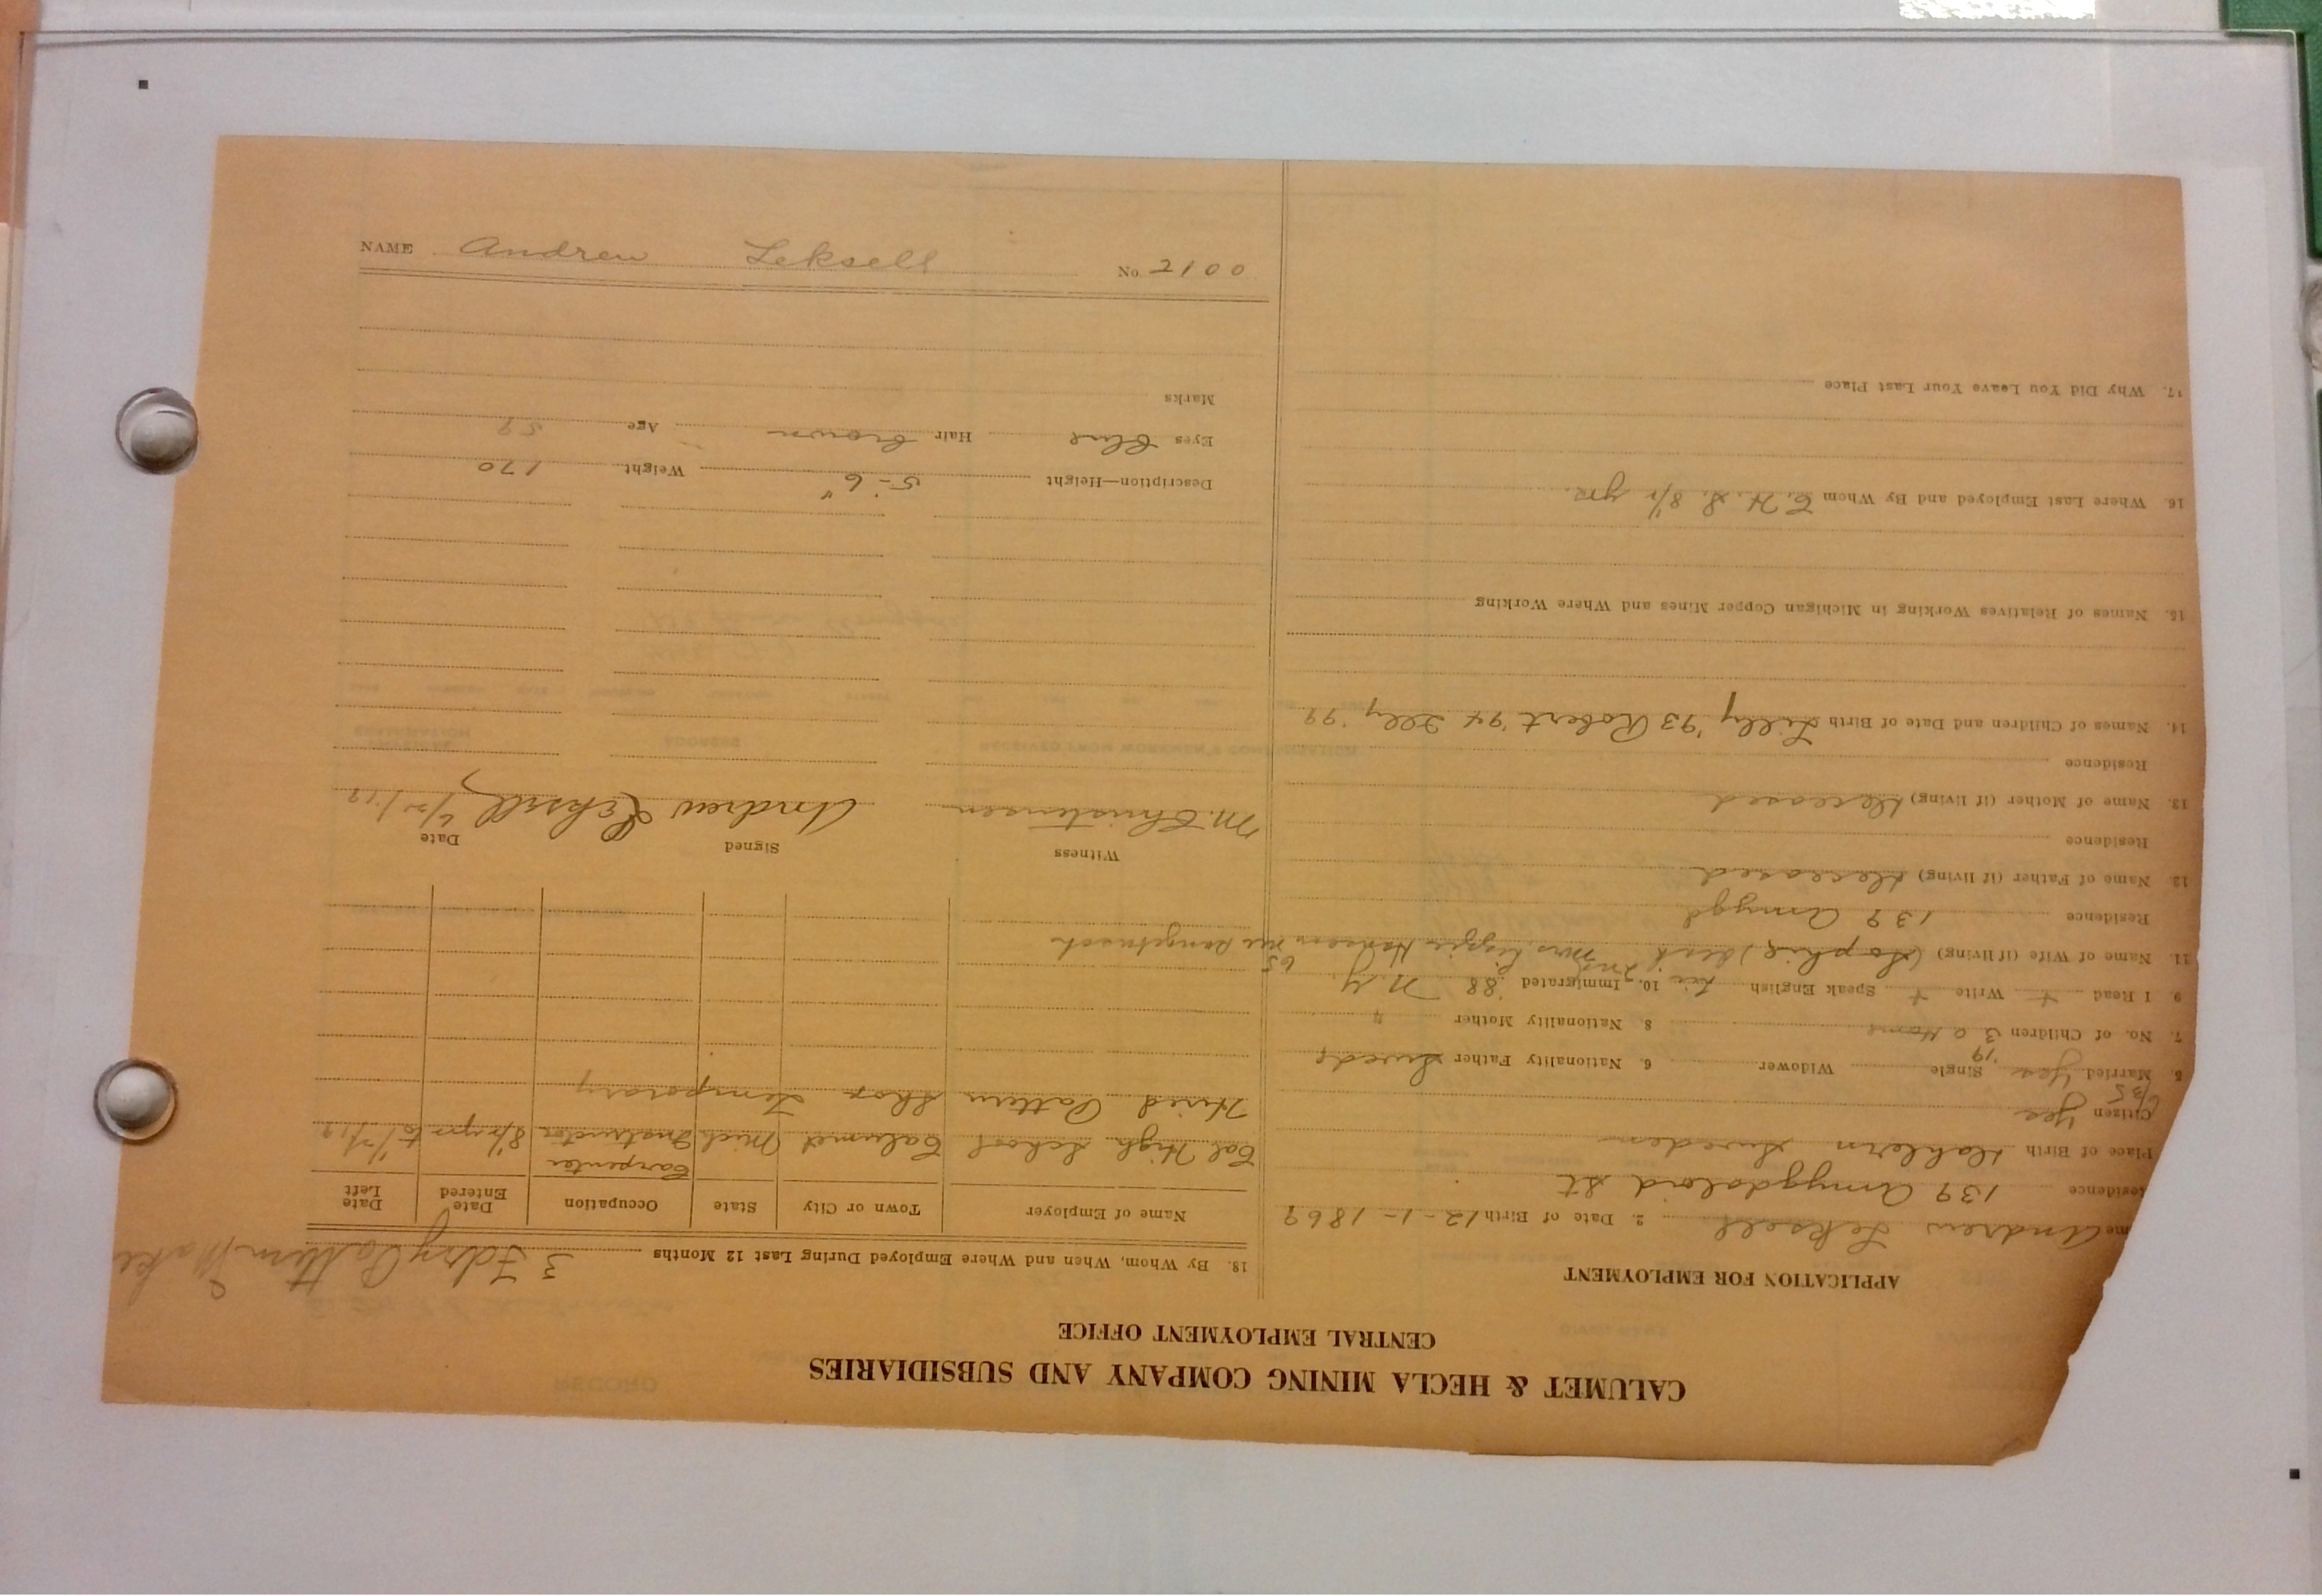 CALUMET & HECLA MINING COMPANY AND SUBSIDIARIES
CENTRAL EMPLOYMENT OFFICE
APPLICATION FOR EMPLOYMENT
me Andrew Leksell 2. Date of Birth 12-1-1869
Residence 139 Amygdaloid St
Place of Birth Sweden
Citizen yes
5. Married yes '19 Single Widower 6. Nationality Father Swede
7. No. of Children 3 0 Home 8 Nationality Mother "
9 I Read + Write + Speak English 10. Immigrated '88 N.Y.
11. Name of Wife (if living) (Sophie) dead Mrs. Lizzie 65
Residence 139 Amygd
12. Name of Father (if living) deceased
Residence
13. Name of Mother (if living) deceased
Residence
14. Names of Children and Date of Birth Lilly '93 Robert '94 '99
15. Names of Relatives Working in Michigan Copper Mines and Where Working
16. Where Last Employed and By Whom C. H. S. 8½ yrs.
17. Why Did You Leave Your Last Place
18. By Whom, When and Where Employed During Last 12 Months 3 Fdry Pattern Make
Name of Employer Town or City State Occupation Date Entered Date Left
Carpenter
Cal High School Calumet Mich Instructor 8½ yrs to
Hired Pattern Shop Temporary
Witness Signed Date
M. Christensen Andrew Leksell
Description—Height 5'-6" Weight 170
Eyes blue Hair brown Age
Marks
NAME Andrew Leksell No. 2100